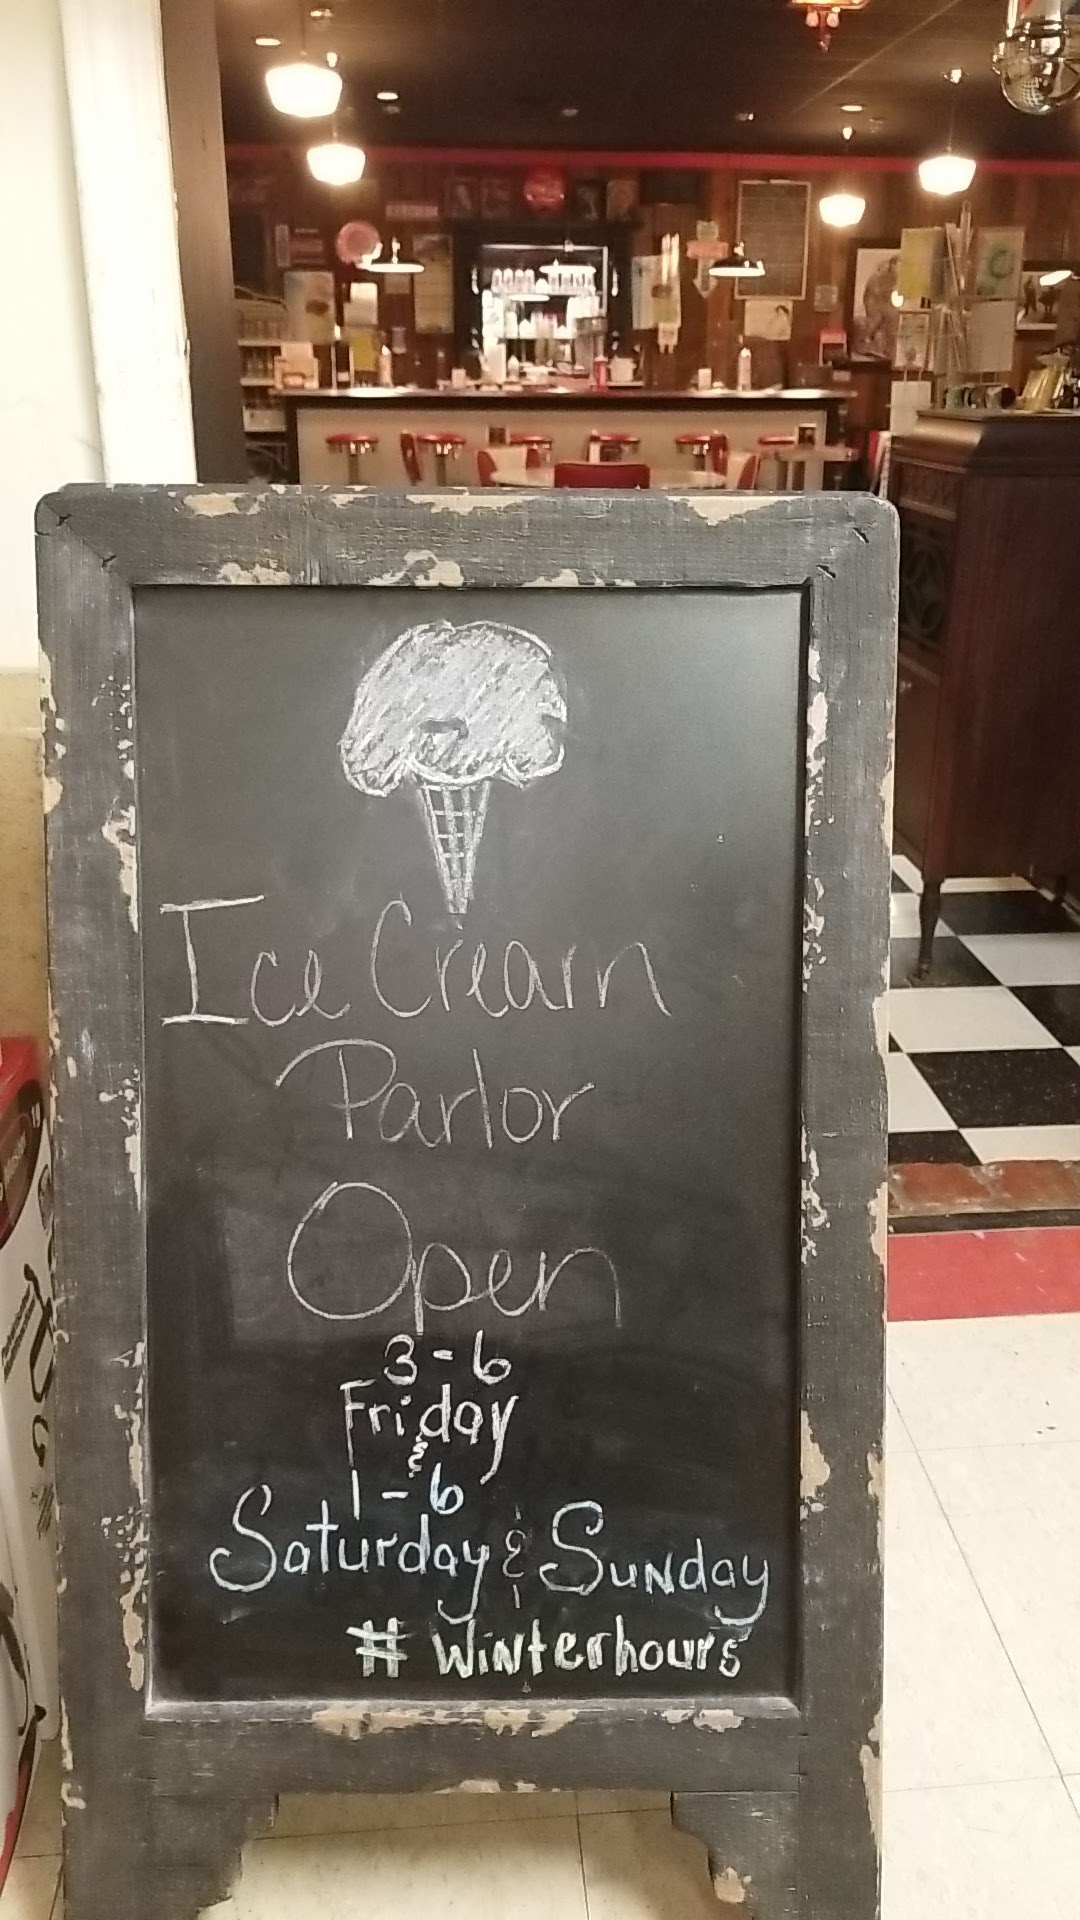 Ice Cream
Parlor
Open
3-6
Friday
&
1-6
Saturday & Sunday
# Winterhours